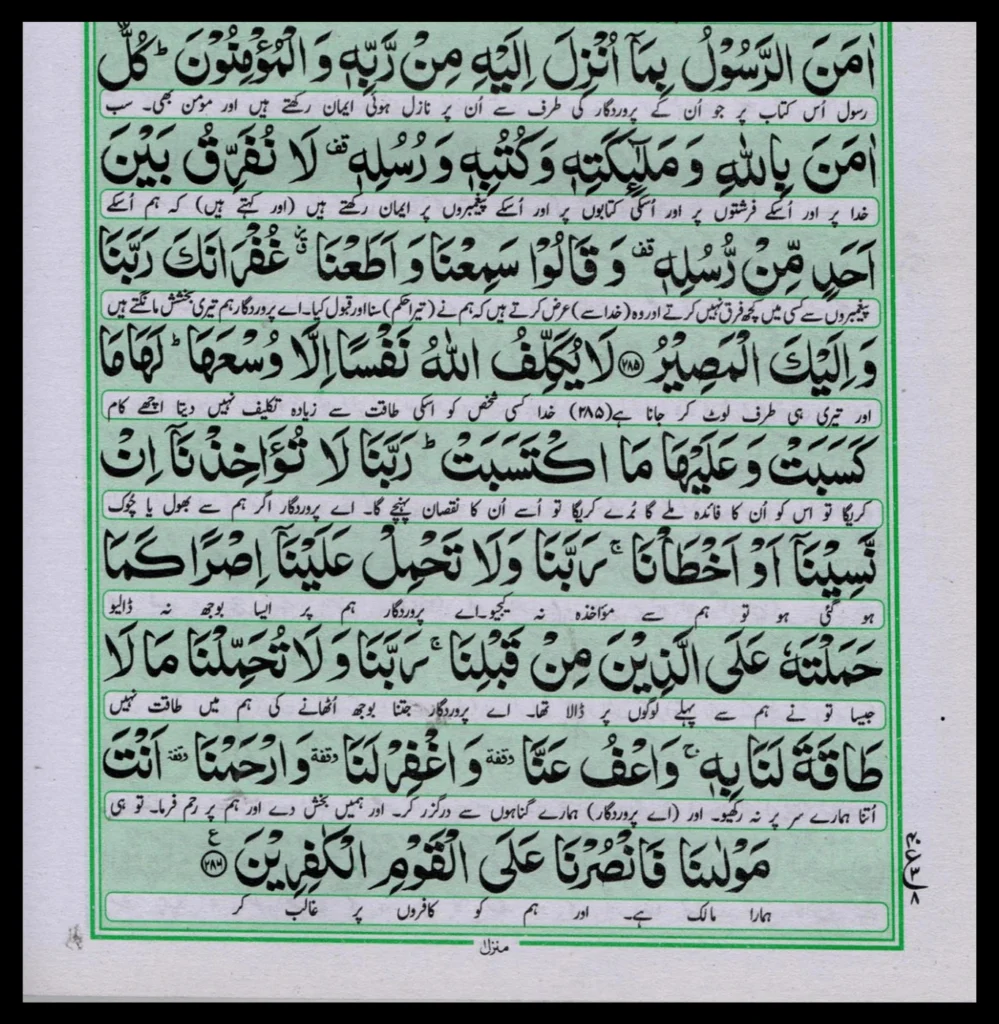 اٰمَنَ الرَّسُوْلُ بِمَاۤ اُنْزِلَ اِلَيْهِ مِنْ رَّبِّهٖ وَ الْمُؤْمِنُوْنَ ؕ كُلٌّ
رسول اُس کتاب پر جو اُن کے پروردگار کی طرف سے اُن پر نازل ہوئی ایمان رکھتے ہیں اور مومن بھی۔ سب
اٰمَنَ بِاللّٰهِ وَ مَلٰٓىِٕكَتِهٖ وَ كُتُبِهٖ وَ رُسُلِهٖ قف لَا نُفَرِّقُ بَيْنَ
خدا پر اور اُسکے فرشتوں پر اور اُسکی کتابوں پر اور اُسکے پیغمبروں پر ایمان رکھتے ہیں (اور کہتے ہیں) کہ ہم اُسکے
اَحَدٍ مِّنْ رُّسُلِهٖ قف وَ قَالُوْا سَمِعْنَا وَ اَطَعْنَا غُفْرَانَكَ رَبَّنَا
پیغمبروں سے کسی میں کچھ فرق نہیں کرتے اور وہ (خدا سے) عرض کرتے ہیں کہ ہم نے (تیرا حکم) سنا اور قبول کیا۔ اے پروردگار ہم تیری بخشش مانگتے ہیں
وَ اِلَيْكَ الْمَصِيْرُ ﴿۲۸۵﴾ لَا يُكَلِّفُ اللّٰهُ نَفْسًا اِلَّا وُسْعَهَا ؕ لَهَا مَا
اور تیری ہی طرف لوٹ کر جانا ہے (۲۸۵) خدا کسی شخص کو اسکی طاقت سے زیادہ تکلیف نہیں دیتا اچھے کام
كَسَبَتْ وَ عَلَيْهَا مَا اكْتَسَبَتْ ؕ رَبَّنَا لَا تُؤَاخِذْنَاۤ اِنْ
کریگا تو اس کو اُن کا فائدہ ملے گا بُرے کریگا تو اُسے اُن کا نقصان پہنچے گا۔ اے پروردگار اگر ہم سے بھول یا چُوک
نَّسِيْنَاۤ اَوْ اَخْطَاْنَا ۚ رَبَّنَا وَ لَا تَحْمِلْ عَلَيْنَاۤ اِصْرًا كَمَا
ہو گئی ہو تو ہم سے مؤاخذہ نہ کیجیو۔ اے پروردگار ہم پر ایسا بوجھ نہ ڈالیو
حَمَلْتَهٗ عَلَى الَّذِيْنَ مِنْ قَبْلِنَا ۚ رَبَّنَا وَ لَا تُحَمِّلْنَا مَا لَا
جیسا تو نے ہم سے پہلے لوگوں پر ڈالا تھا۔ اے پروردگار جتنا بوجھ اُٹھانے کی ہم میں طاقت نہیں
طَاقَةَ لَنَا بِهٖ ۚ وَ اعْفُ عَنَّا وقفة وَ اغْفِرْ لَنَا وقفة وَ ارْحَمْنَا وقفة اَنْتَ
اُتنا ہمارے سر پر نہ رکھیو۔ اور (اے پروردگار) ہمارے گناہوں سے درگزر کر۔ اور ہمیں بخش دے اور ہم پر رحم فرما۔ تو ہی
مَوْلٰىنَا فَانْصُرْنَا عَلَى الْقَوْمِ الْكٰفِرِيْنَ ﴿۲۸۶﴾ ع
ہمارا مالک ہے۔ اور ہم کو کافروں پر غالب کر
منزل